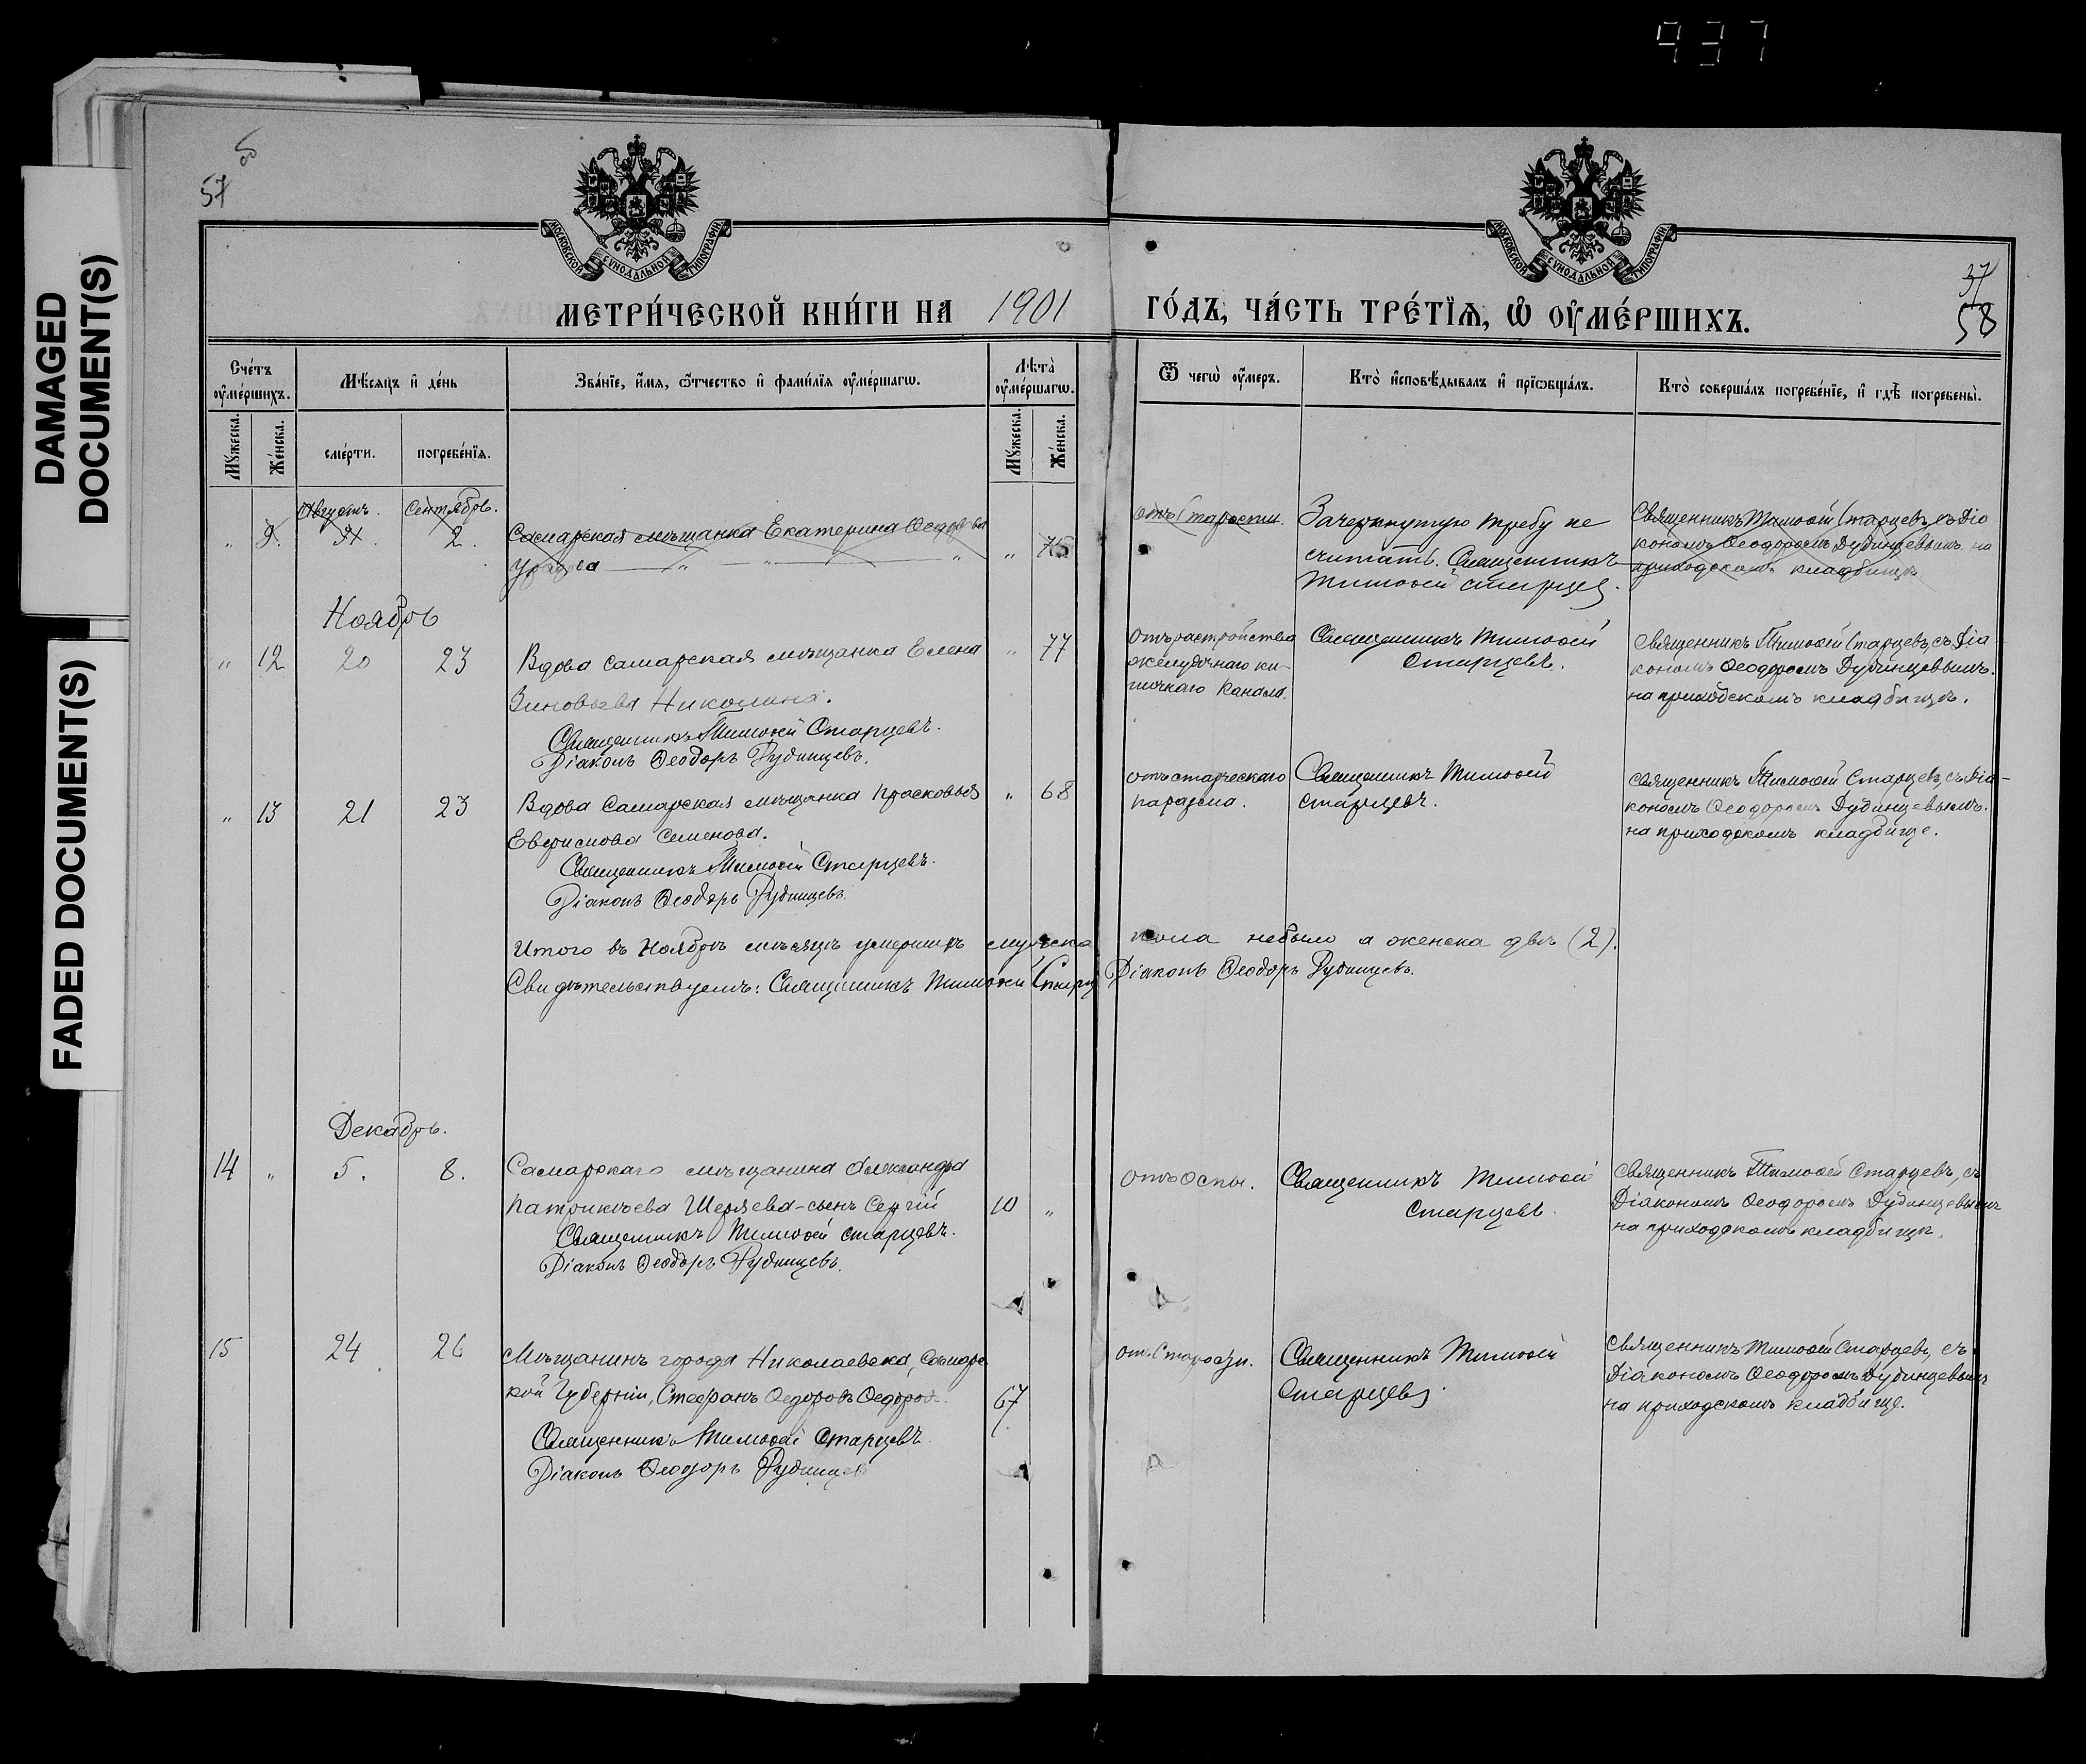 937
DAMAGED
DOCUMENT(S)
FADED DOCUMENT(S)
57
МОСКОВСКОЙ СѴНОДАЛЬНОЙ ТИПОГРАФІИ
МОСКОВСКОЙ СѴНОДАЛЬНОЙ ТИПОГРАФІИ
37
58
МЕТРИ́ЧЕСКОЙ КНИ́ГИ НА 1901 ГО́ДЪ, ЧА́СТЬ ТРЕ́ТІѦ, Ѡ҆ ОУ҆МЕ́РШИХЪ.
Сче́тъ оу҆ме́ршихъ.
Мѣ́сѧцъ и҆ де́нь
Зва́нїе, и҆́мѧ, ѻ҆́тчество и҆ фами́лїѧ оу҆ме́ршагѡ.
Лѣта̀ оу҆ме́ршагѡ.
Ѿ чегѡ̀ оу҆́меръ.
Кто̀ и҆сповѣ́дывалъ и҆ прїѡбща́лъ.
Кто̀ соверша́лъ погребе́нїе, и҆ гдѣ̀ погребены̀.
Мꙋ́жеска.
Же́нска.
сме́рти.
погребе́нїѧ.
Мꙋ́жеска.
Же́нска.
Августъ. Сентябрь.
„ 9. 31. 2. Самарская мѣщанка Екатерина Ѳедорова
„ 75
отъ Старости.
Зачеркнутую требу не
считать. Священникъ
Тимоѳей Старцев.
Священникъ Тимоѳей Старцевъ, съ діа
кономъ Ѳеодоромъ Дубинцевымъ на
приходскомъ кладбищѣ
Ноябрь
„ 12 20 23 Вдова самарская мѣщанка Елена
Зиновьева Николина.
Священникъ Тимоѳей Старцевъ.
Діаконъ Ѳеодоръ Дубинцевъ.
„ 77
отъ растройства
желудочнаго ки-
шечнаго канала.
Священникъ Тимоѳей
Старцевъ.
Священникъ Тимоѳей Старцевъ, съ Діа
кономъ Ѳеодоромъ Дубинцевымъ.
на приходскомъ кладбищѣ.
„ 13 21 23 Вдова Самарская мѣщанка Прасковья
Евфимова Семенова.
Священникъ Тимоѳей Старцевъ.
Діаконъ Ѳеодоръ Дубинцевъ.
„ 68
отъ старческаго
Священникъ Тимоѳей
Старцевъ.
Священникъ Тимоѳей Старцевъ, съ Діа-
кономъ Ѳеодоромъ Дубинцевымъ.
на приходскомъ кладбище.
Итого въ Ноябрѣ мѣсяцѣ умершихъ мужска пола небыло а женска двѣ (2).
Свидѣтельствуемъ: Священникъ Тимоѳей Старц Діаконъ Ѳеодоръ Дубинцевъ.
Декабрь.
14 „ 5. 8. Самарскаго мѣщанина Александра
Патрикѣева Шеряева-сынъ Сергій
Священникъ Тимоѳей Старцевъ.
Діаконъ Ѳеодоръ Дубинцевъ.
10 „
отъ Оспы.
Священникъ Тимоѳей
Старцевъ.
Священникъ Тимоѳей Старцевъ, съ
Діакономъ Ѳеодоромъ Дубинцевымъ
на приходскомъ кладбищѣ.
15 24 26 Мѣщанинъ города Николаевска, Самарс
кой Губерніи, Стефанъ Ѳедоровъ Ѳедоров.
Священникъ Тимоѳей Старцевъ.
Діаконъ Ѳеодоръ Дубинцев
67
от. Старости.
Священникъ Тимоѳей
Старцевъ
Священникъ Тимоѳей Старцевъ, съ
Діакономъ Ѳеодоромъ Дубинцевымъ
на приходскомъ кладбище.